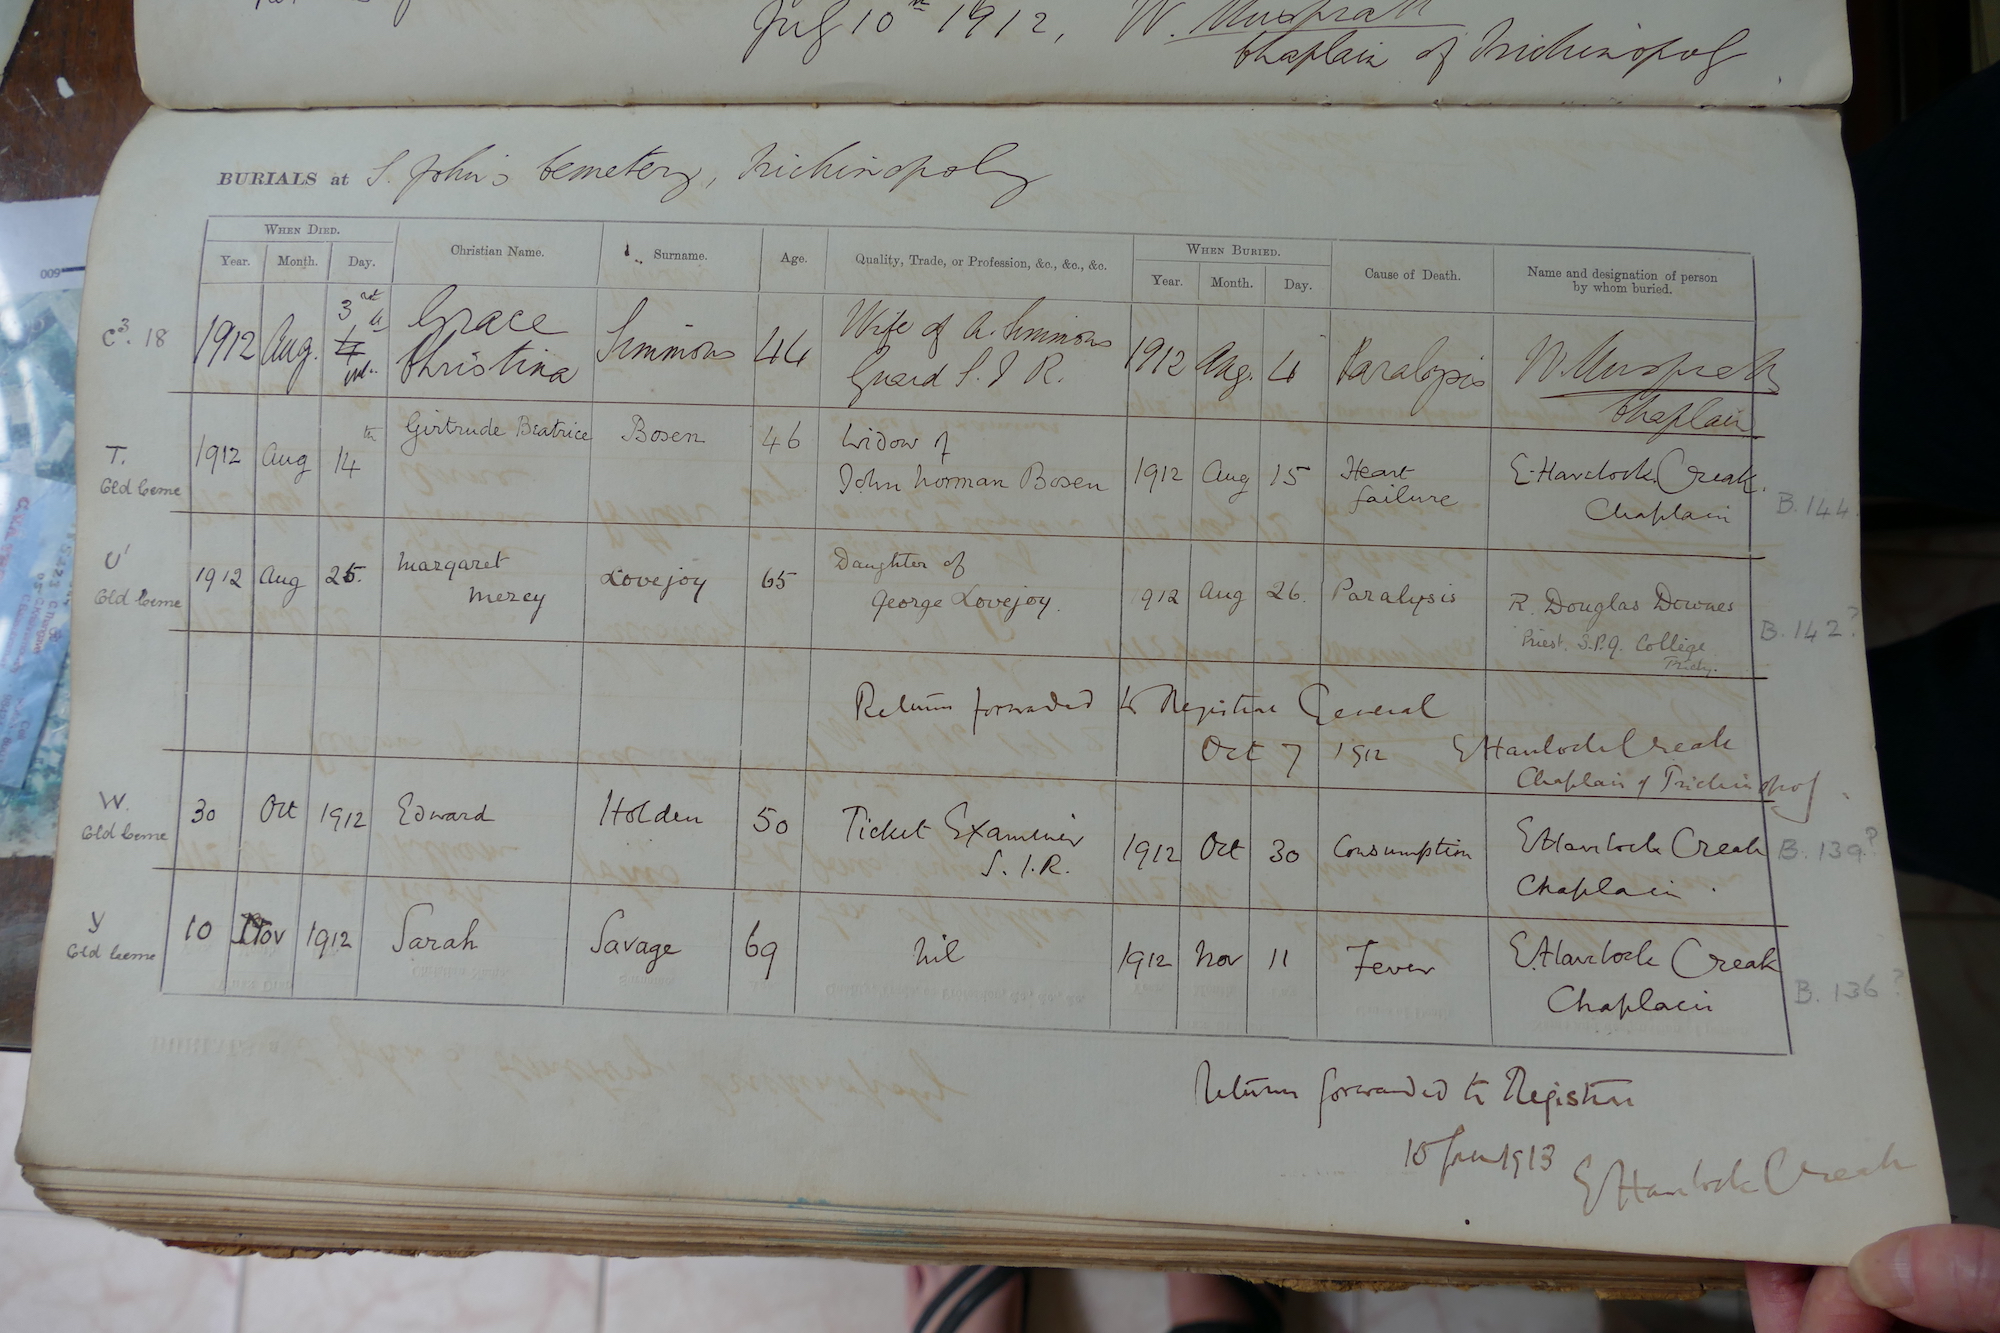 July 10th 1912, W. Muspratt
Chaplain of Trichinopoly
BURIALS at S. John's Cemetery, Trichinopoly
WHEN DIED. Christian Name. Surname. Age. Quality, Trade, or Profession, &c., &c., &c. WHEN BURIED. Cause of Death. Name and designation of person by whom buried.
Year. Month. Day. Year. Month. Day.
C3. 18 1912 Aug. 3rd 4 Grace Christina Simmons 44 Wife of A. Simmons Guard S. I. R. 1912 Aug. 4 Paralysis W. Muspratt Chaplain
T. Old Ceme 1912 Aug 14th Girtrude Beatrice Bosen 46 Widow of John Norman Bosen 1912 Aug 15 Heart failure E. Havelock Creak. Chaplain B. 144.
U' Old Ceme 1912 Aug 25. Margaret Mercy Lovejoy 65 Daughter of George Lovejoy. 1912 Aug 26. Paralysis R. Douglas Downes Priest. S.P.G. College Trichy. B. 142?
Return forwarded to Registrar General
Oct 7 1912 E Havelock Creak
Chaplain of Trichinopoly
W. Old Ceme 30 Oct 1912 Edward Holden 50 Ticket Examiner S. I. R. 1912 Oct 30 Consumption E Havelock Creak Chaplain. B. 139?
Y Old Ceme 10 Nov 1912 Sarah Savage 69 Nil 1912 Nov 11 Fever E. Havelock Creak Chaplain B. 136?
Return forwarded to Registrar
10 Jan 1913 E Havelock Creak